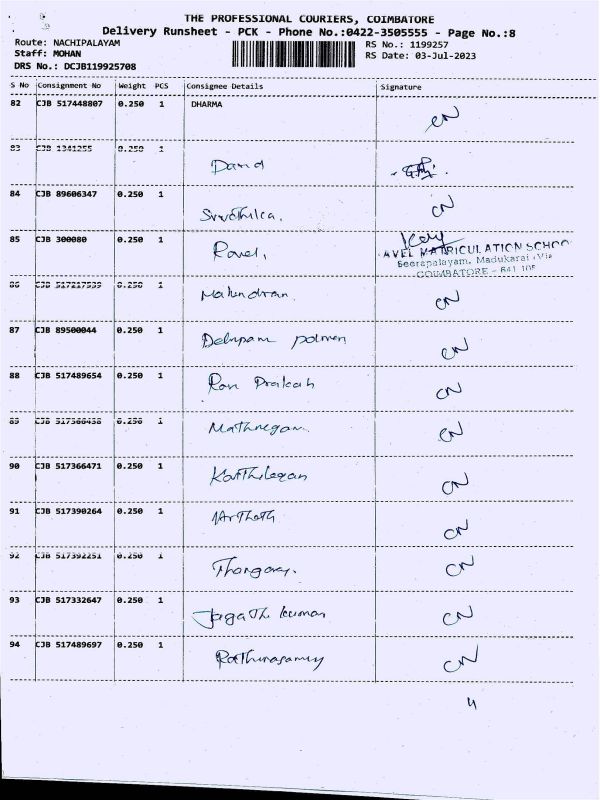 THE PROFESSIONAL COURIERS, COIMBATORE
Delivery Runsheet - PCK - Phone No.:0422-3505555 - Page No.:8
Route: NACHIPALAYAM RS No.: 1199257
Staff: MOHAN RS Date: 03-Jul-2023
DRS No.: DCJB119925708
S No Consignment No Weight PCS Consignee Details Signature
82 CJB 517448807 0.250 1 DHARMA CN
83 CJB 1341255 0.250 1
84 CJB 89606347 0.250 1 CN
85 CJB 300080 0.250 1 Ravel,
AVEL MATRICULATION SCHOO
Seerapalayam, Madukarai (Via
COIMBATORE - 641 105
86 CJB 517217539 0.250 1 Mahendran. CN
87 CJB 89500044 0.250 1 CN
88 CJB 517489654 0.250 1 Ram Prakash CN
89 CJB 0.250 1 CN
90 CJB 517366471 0.250 1 CN
91 CJB 517390264 0.250 1 CN
92 CJB 517392251 0.250 1 CN
93 CJB 517332647 0.250 1 Jagath kumar CN
94 CJB 517489697 0.250 1 Rathinasamy CN
4